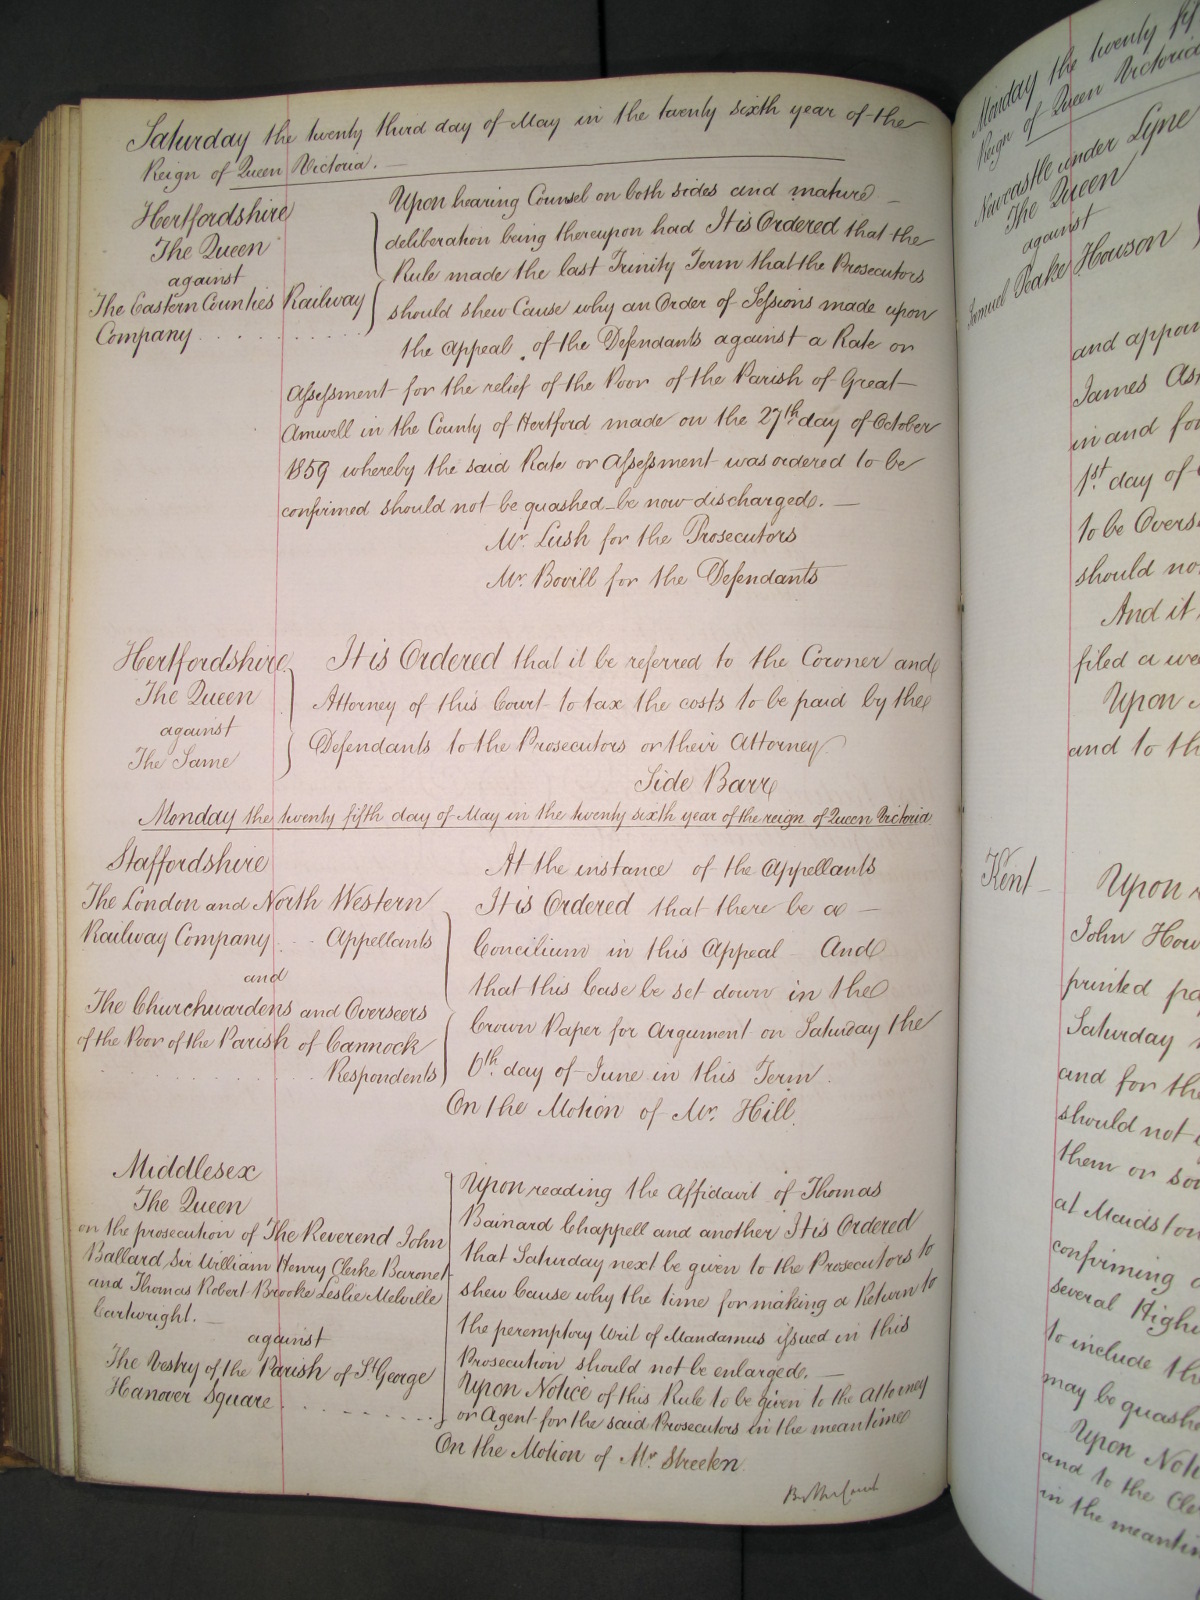 Saturday the twenty third day of May in the twenty sixth year of the
Reign of Queen Victoria. —
Hertfordshire
The Queen
against
The Eastern Counties Railway
Company . . . . . . . . .
Upon hearing Counsel on both sides and mature —
deliberation being thereupon had It is Ordered that the
Rule made the last Trinity Term that the Prosecutors
should shew Cause why an Order of Sessions made upon
the Appeal of the Defendants against a Rate or
Assessment for the relief of the Poor of the Parish of Great
Amwell in the County of Hertford made on the 27th day of October
1859 whereby the said Rate or Assessment was ordered to be
confirmed should not be quashed be now discharged. —
Mr. Lush for the Prosecutors
Mr. Bovill for the Defendants
Hertfordshire
The Queen
against
The Same
It is Ordered that it be referred to the Coroner and
Attorney of this Court to tax the costs to be paid by the
Defendants to the Prosecutors or their Attorney.
Side Barr
Monday the twenty fifth day of May in the twenty sixth year of the reign of Queen Victoria
Staffordshire
The London and North Western
Railway Company . . Appellants
and
The Churchwardens and Overseers
of the Poor of the Parish of Cannock
Respondents
At the instance of the Appellants
It is Ordered that there be a —
Concilium in this Appeal And
that this Case be set down in the
Crown Paper for Argument on Saturday the
6th day of June in this Term.
On the Motion of Mr. Hill.
Middlesex
The Queen
on the prosecution of The Reverend John
Ballard, Sir William Henry Clerke Baronet
and Thomas Robert Brooke Leslie Melville
Cartwright. —
against
The Vestry of the Parish of St. George
Hanover Square . . . . . . . .
Upon reading the Affidavit of Thomas
Bainard Chappell and another It is Ordered
that Saturday next be given to the Prosecutors to
shew Cause why the time for making a Return to
the peremptory Writ of Mandamus issued in this
Prosecution should not be enlarged. —
Upon Notice of this Rule to be given to the Attorney
or Agent for the said Prosecutors in the meantime
On the Motion of Mr.
By the Court
Monday the twenty
Reign of Queen Victoria
Newcastle under Lyne
The Queen
against
Samuel Peake Howson
and
James
in and for
1st. day of
to be
should
And it
filed a
Upon
and to
Kent —
Upon
John
printed
Saturday
and for the
should not
them or
at Maidstone
confirming
several
to include the
may be
Upon
and to the
in the